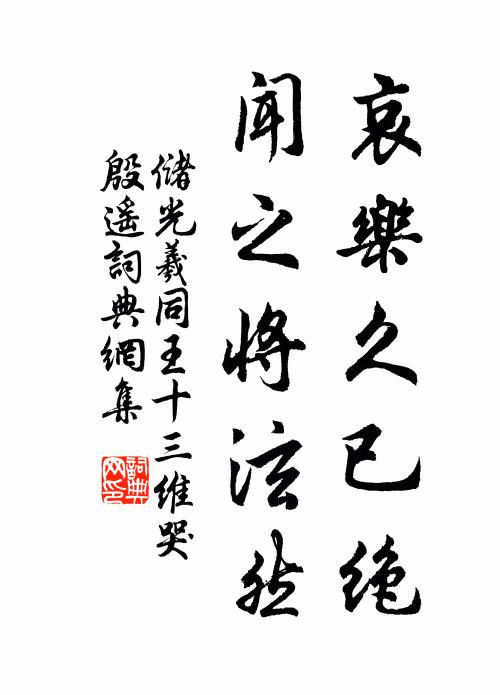 哀樂久已絕
聞之將泫然
儲光羲同王十三維哭
殷遥詞典網集
詞典
网印